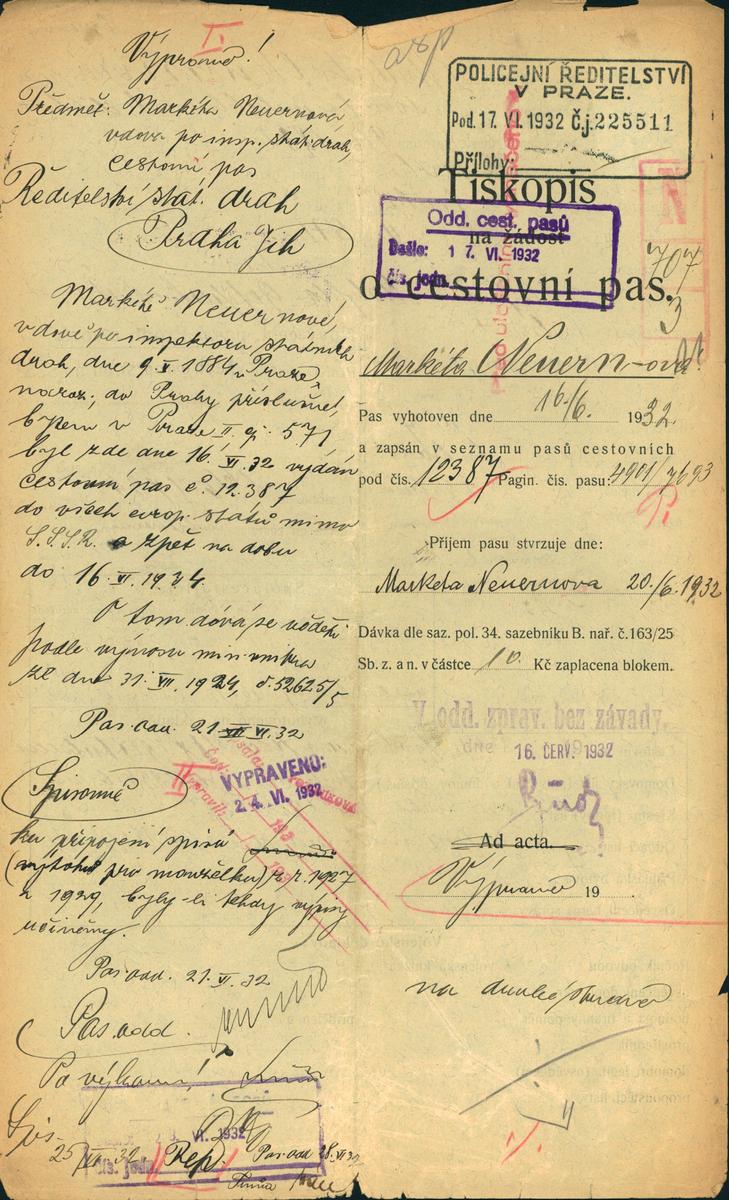 I.
Výpravně!
Předmět: Markéta Neuernová
vdova po insp. stát. drah,
cestovní pas
Ředitelství stát. drah
Praha Jih
Markétě Neuernové,
vdově po inspektoru státních
drah, dne 9.V.1884 v Praze
naroz., do Prahy příslušné,
bytem v Praze II. čp. 571
byl zde dne 16. VI. 32 vydán
cestovní pas č. 12.387
do všech evrop. států mimo
S.S.S.R. a zpět na dobu
do 16. VI. 1934.
O tom dává se věděti
podle výnosu min. vnitra
ze dne 31. VII. 1924, č. 52625/5
Pas. odd. 21 VI. 32
II.
VYPRAVENO:
24. VI. 1932
Spisovně
ku připojení spisů
(výtahu pro manželku) z r. 1927
a 1929, byly-li tehdy výpisy
učiněny.
Pas. odd. 21. VI. 32
Pas. odd.
Po výkonu!
Spis.
25 VI. 32
VI. 1932
čís. jedn.
Rep.
Pas. odd. 28. VI. 32
asp
POLICEJNÍ ŘEDITELSTVÍ
V PRAZE.
Pod. 17. VI. 1932 Č.j. 225511
Přílohy:
Tiskopis
Odd. cest. pasů
na žádost
Došlo: 17. VI. 1932
čís. jedn.
o cestovní pas.
N
707
3
Markéta Neuernová
Pas vyhotoven dne 16/6. 1932.
a zapsán v seznamu pasů cestovních
pod čís. 12387 Pagin. čís. pasu: 4901/7693
P.
Příjem pasu stvrzuje dne:
Marketa Neuernova 20./6.1932
Dávka dle saz. pol. 34. sazebníku B. nař. č. 163/25
Sb. z. a n. v částce 10. Kč zaplacena blokem.
V odd. zprav. bez závady.
dne
16. ČERV. 1932
Ad acta.
Výpravně 19
na druhé straně